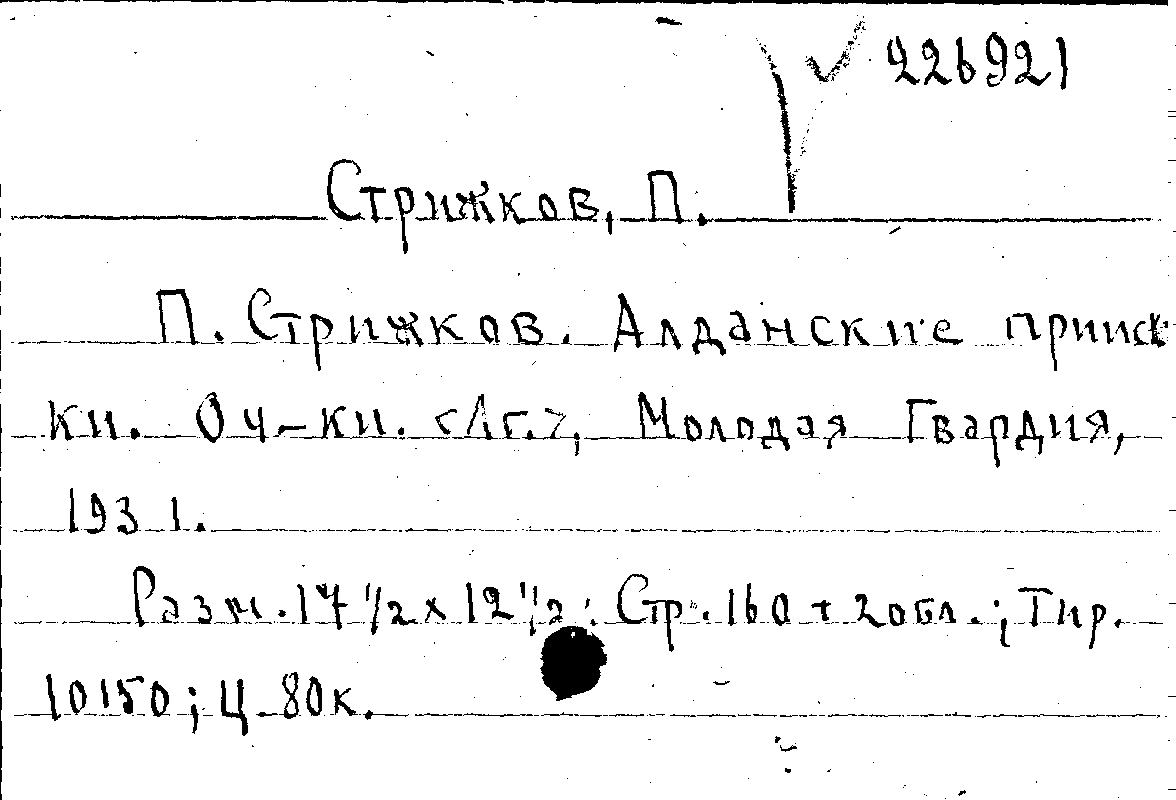 226921
Стрижков, П.
П. Стрижков. Алданские приис
ки. Оч-ки. <Лг.>, Молодая Гвардия,
1931.
Разм. 17 1/2 x 12 1/2; Стр. 160 + 2 обл.; Тир.
10150; Ц. 80к.